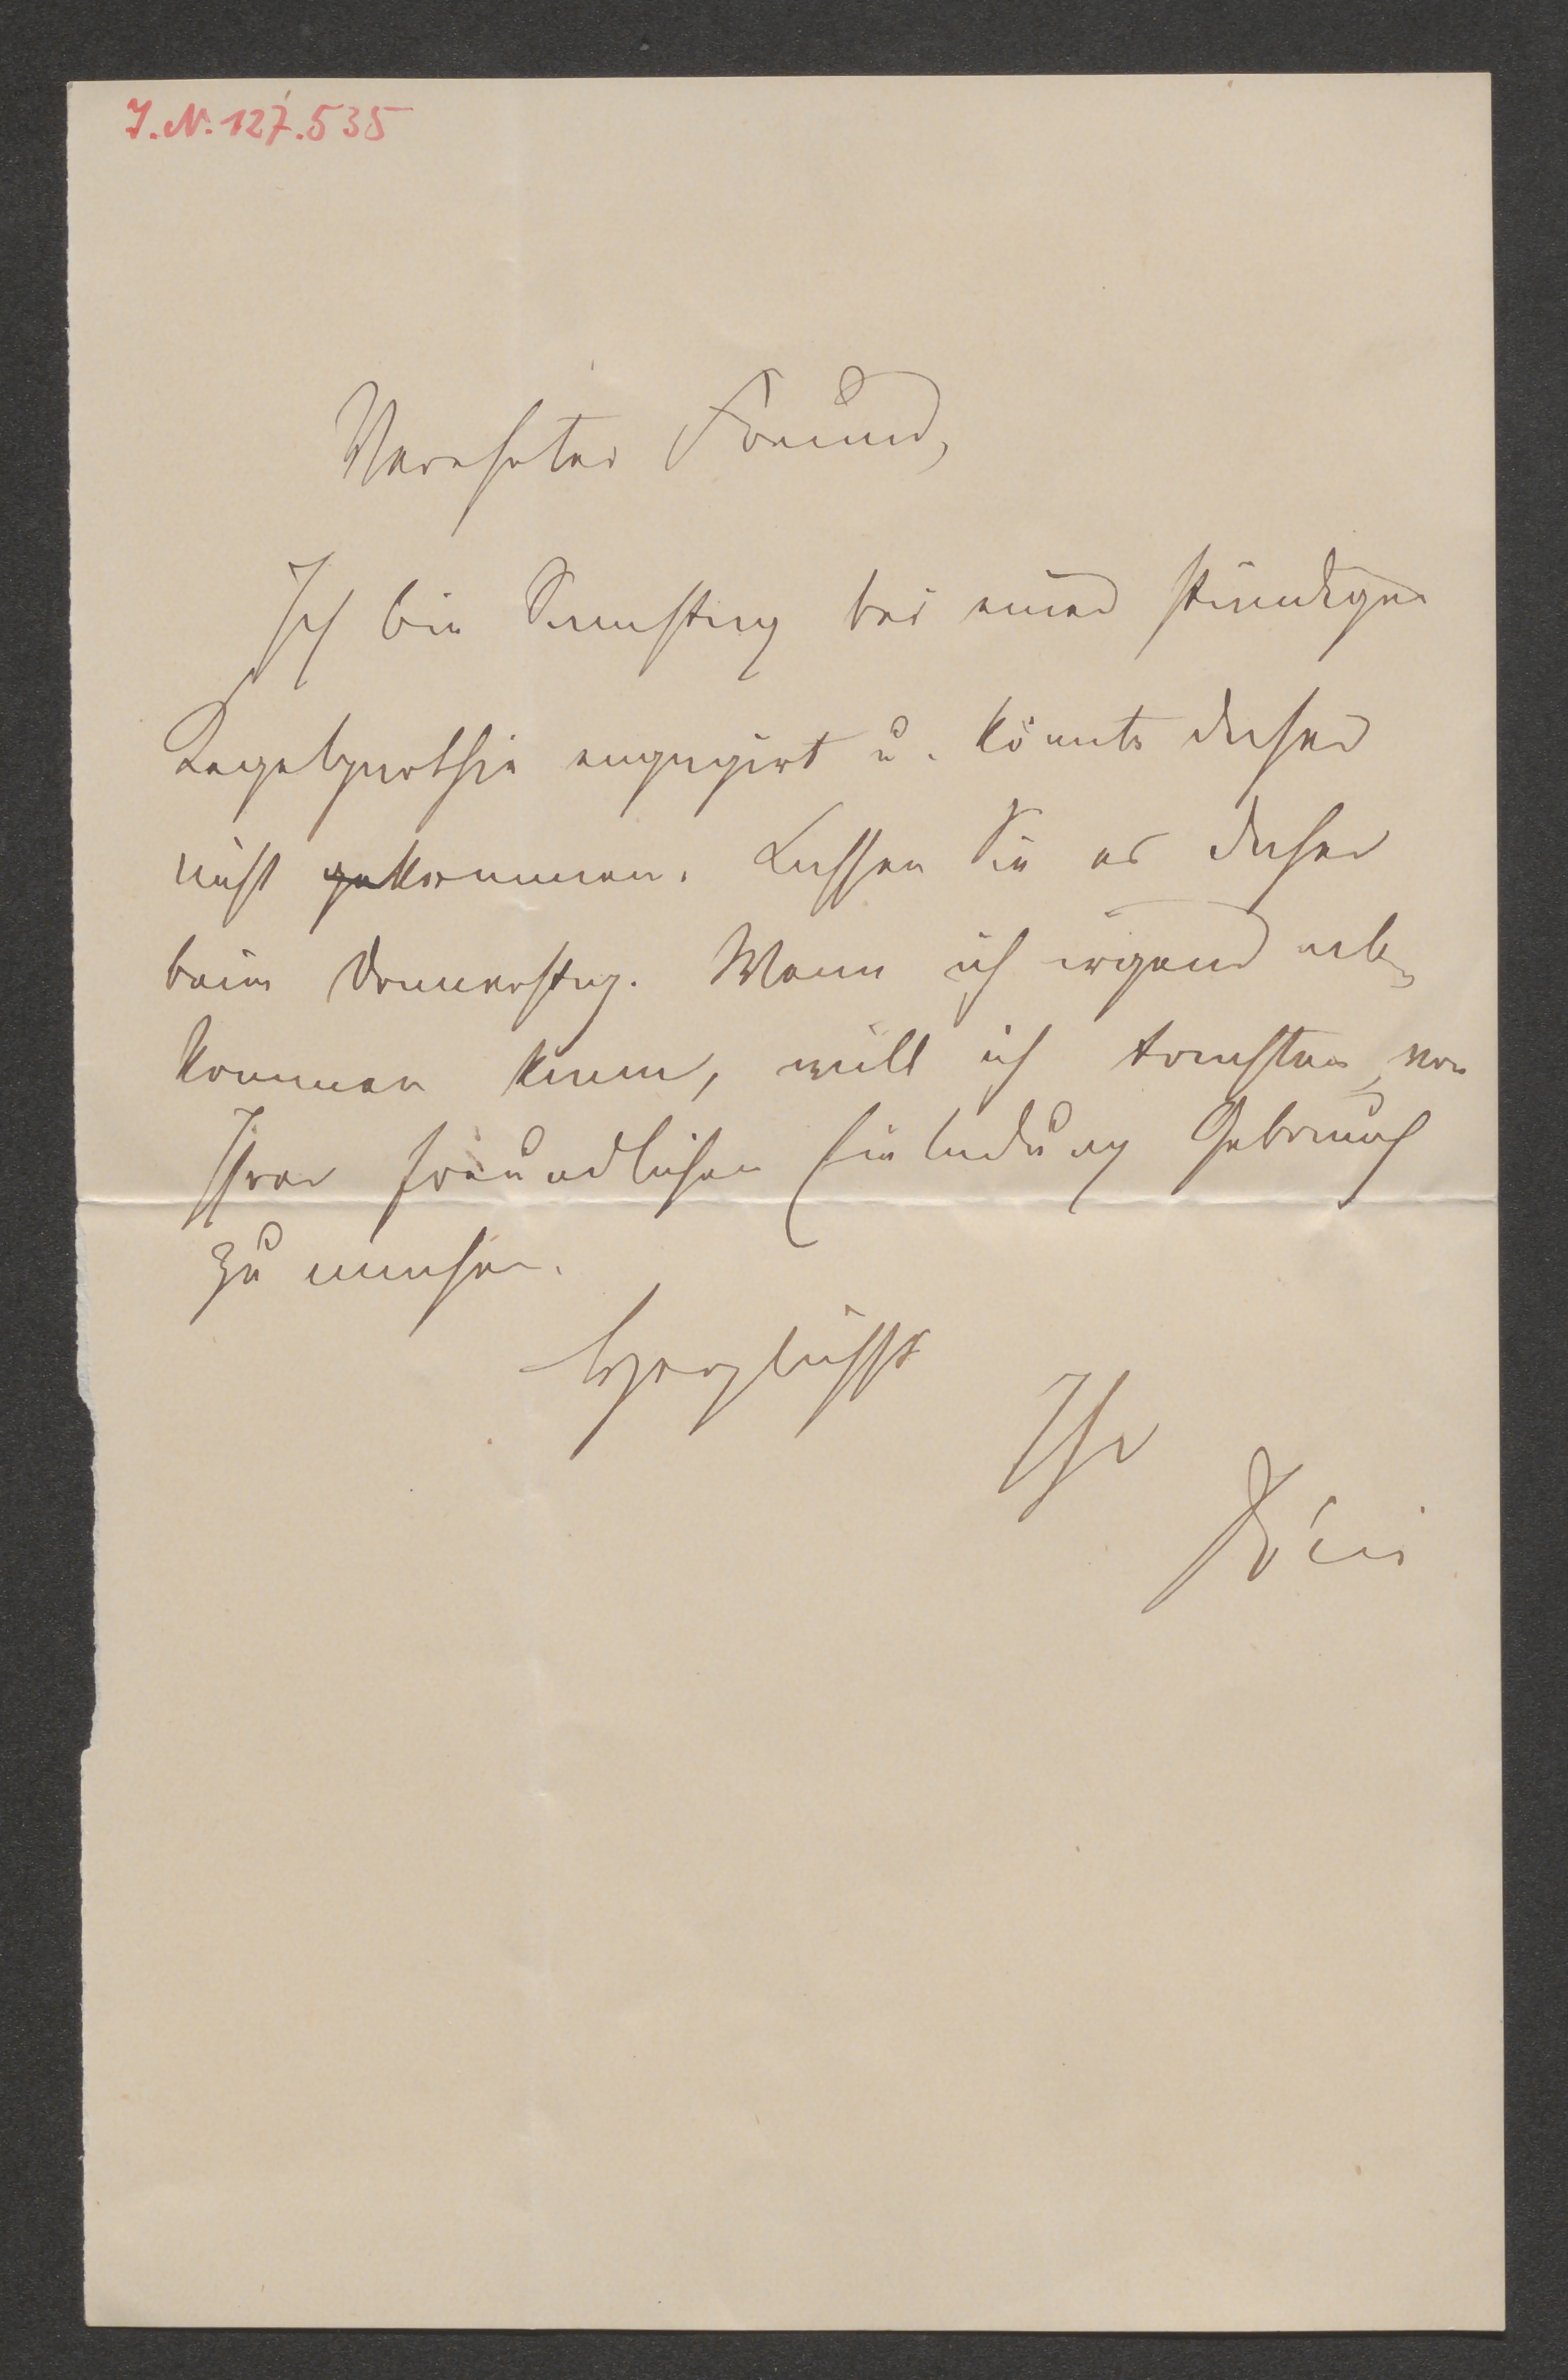 J. N. 127.535
Verehrter Freund,
Ich bin Samstag bei einer ständigen
Kegelparthie engagirt u. könnte daher
nicht kommen. Lassen Sie es daher
beim Donnerstag. Wenn ich irgend ab-
kommen kann, will ich trachten, von
Ihrer freundlichen Einladung Gebrauch
zu machen.
Herzlichst
Ihr